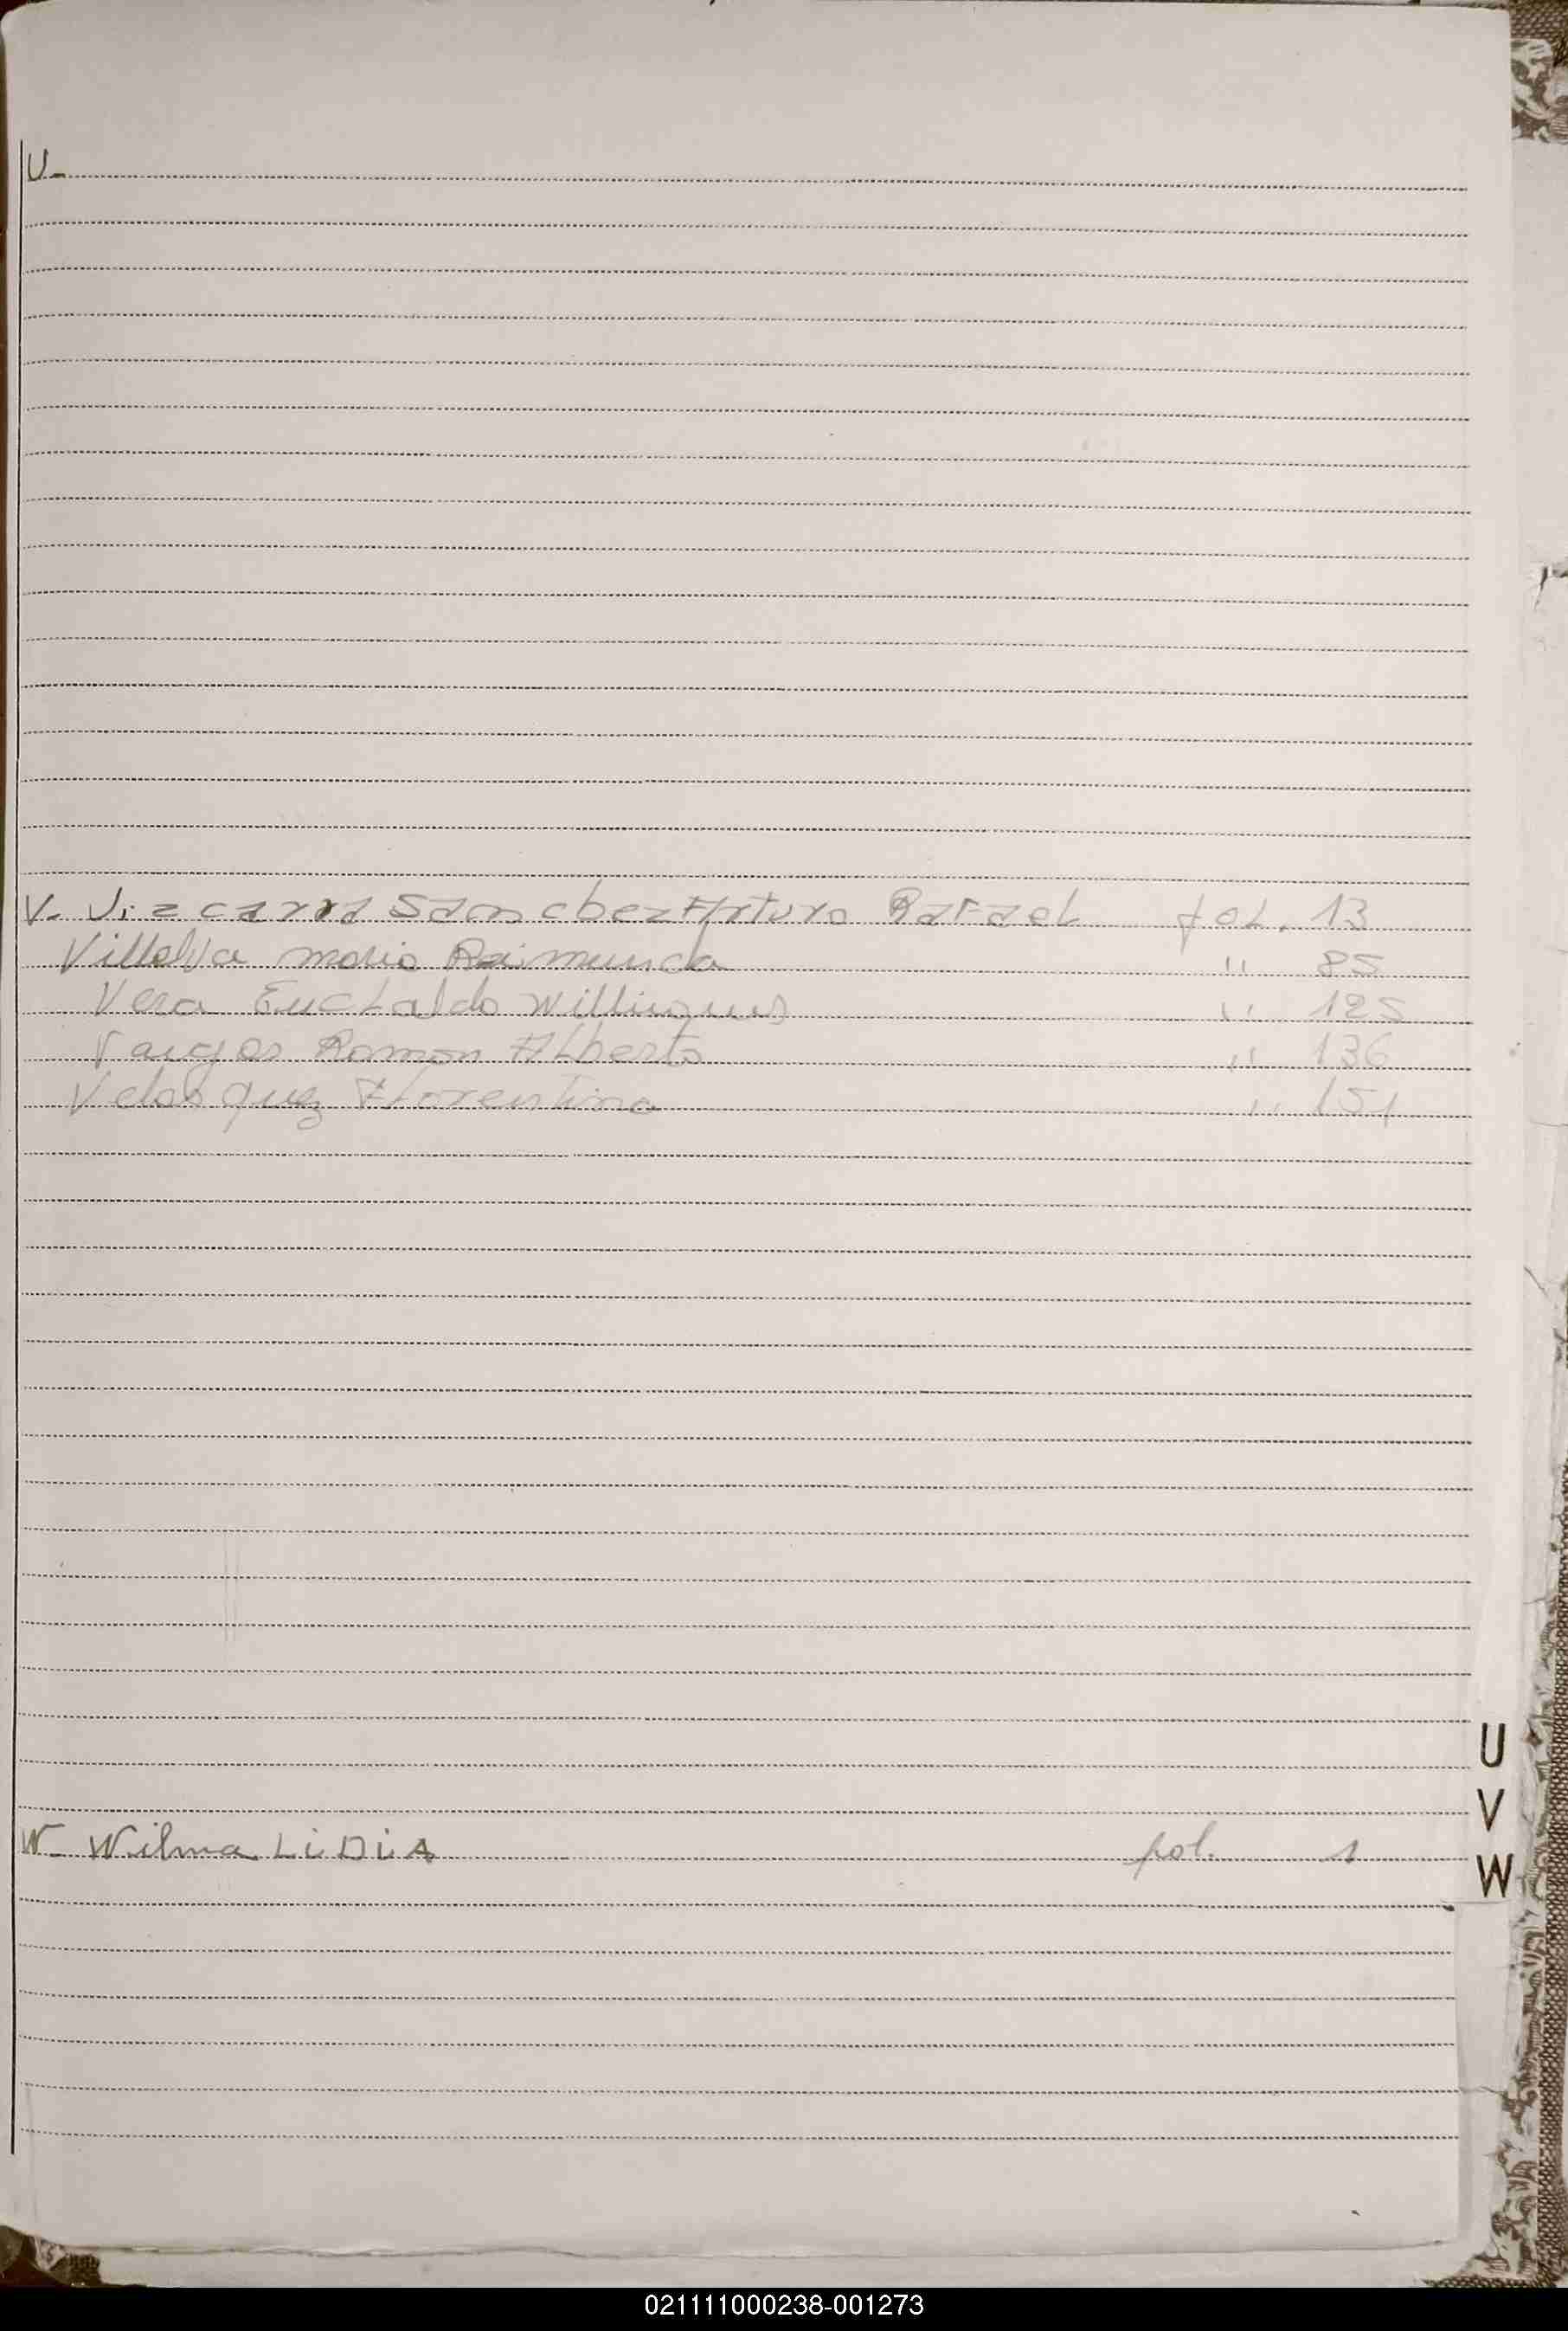 U-
V. Vizcarra Sanchez Arturo Rafael fol. 13
Villalva maria Raimunda " 85
Vera " 125
Vargas Ramon Alberto " 136
Velasquez Florentino " 151
U
V
W- Wilma LiDiA fol. 1
W
021111000238-001273